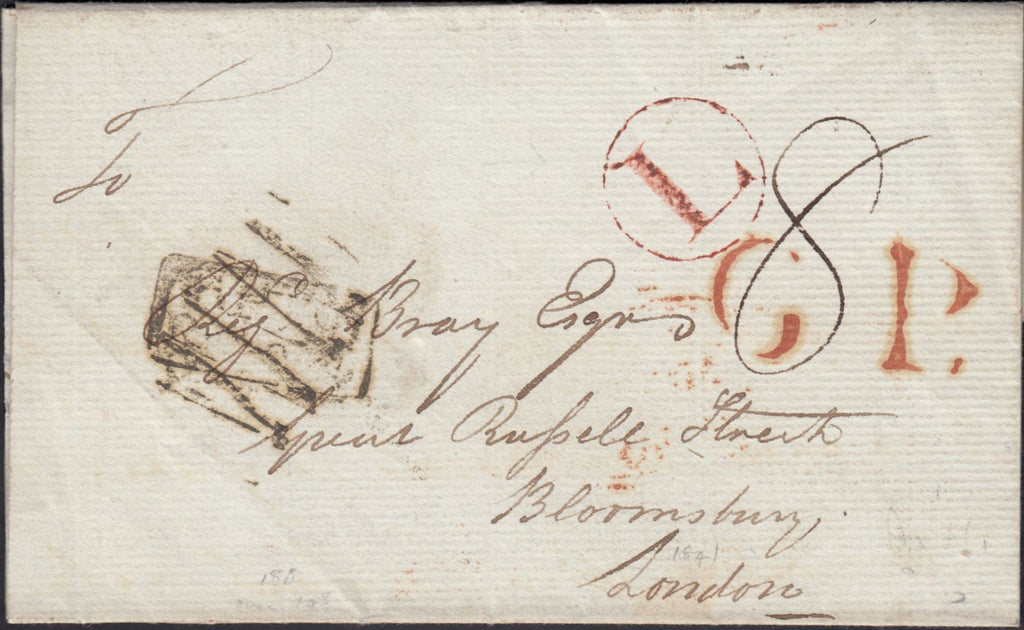 To
L
8
G P.
Regd Bray Esqre
Great Russell Street
Bloomsbury
London
1841
188
198